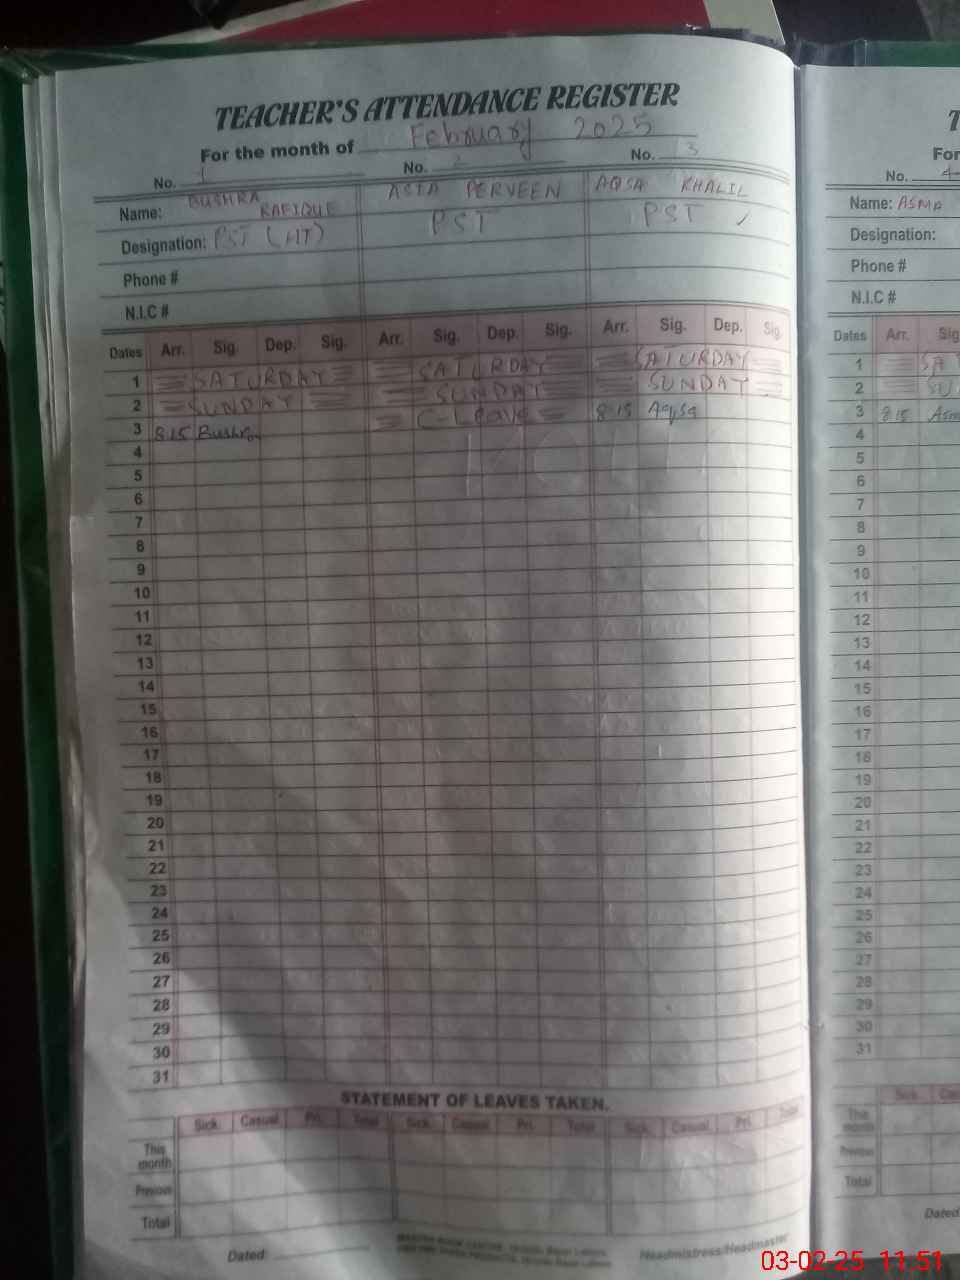 TEACHER'S ATTENDANCE REGISTER
For the month of February 2025
No. 1 No. 2 No. 3
Name: BUSHRA RAFIQUE ASIA PERVEEN AQSA KHALIL
Designation: PST (HT) PST PST
Phone #
N.I.C #
Dates Arr. Sig. Dep. Sig. Arr. Sig. Dep. Sig. Arr. Sig. Dep. Sig.
1 SATURDAY SATURDAY SATURDAY
2 SUNDAY SUNDAY SUNDAY
3 8:15 Bushra C-Leave 8:15 Aqsa
4
5
6
7
8
9
10
11
12
13
14
15
16
17
18
19
20
21
22
23
24
25
26
27
28
29
30
31
STATEMENT OF LEAVES TAKEN.
Sick. Casual Pri. Total Sick. Casual Pri. Total Sick. Casual Pri. Total
This month
Previous
Total
Dated:
Headmistress/Headmaster
T
For
No. 4
Name: ASMA
Designation:
Phone #
N.I.C #
Dates Arr. Sig
1 SAT
2 SU
3 8:15 Asm
4
5
6
7
8
9
10
11
12
13
14
15
16
17
18
19
20
21
22
23
24
25
26
27
28
29
30
31
Sick. Cas
This month
Previous
Total
Dated
03-02-25 11:51